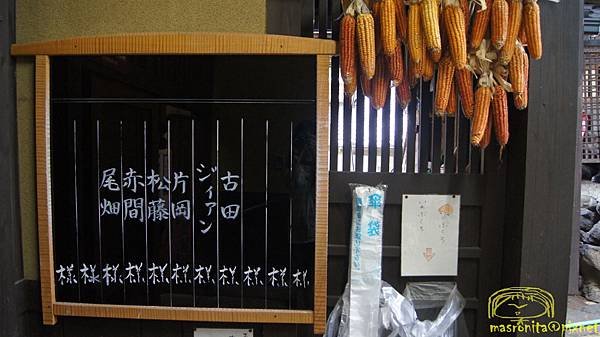 様
様
様
古田様
ジィアン様
片岡様
松藤様
赤間様
尾畑様
様
様
傘袋
masronita@pixnet